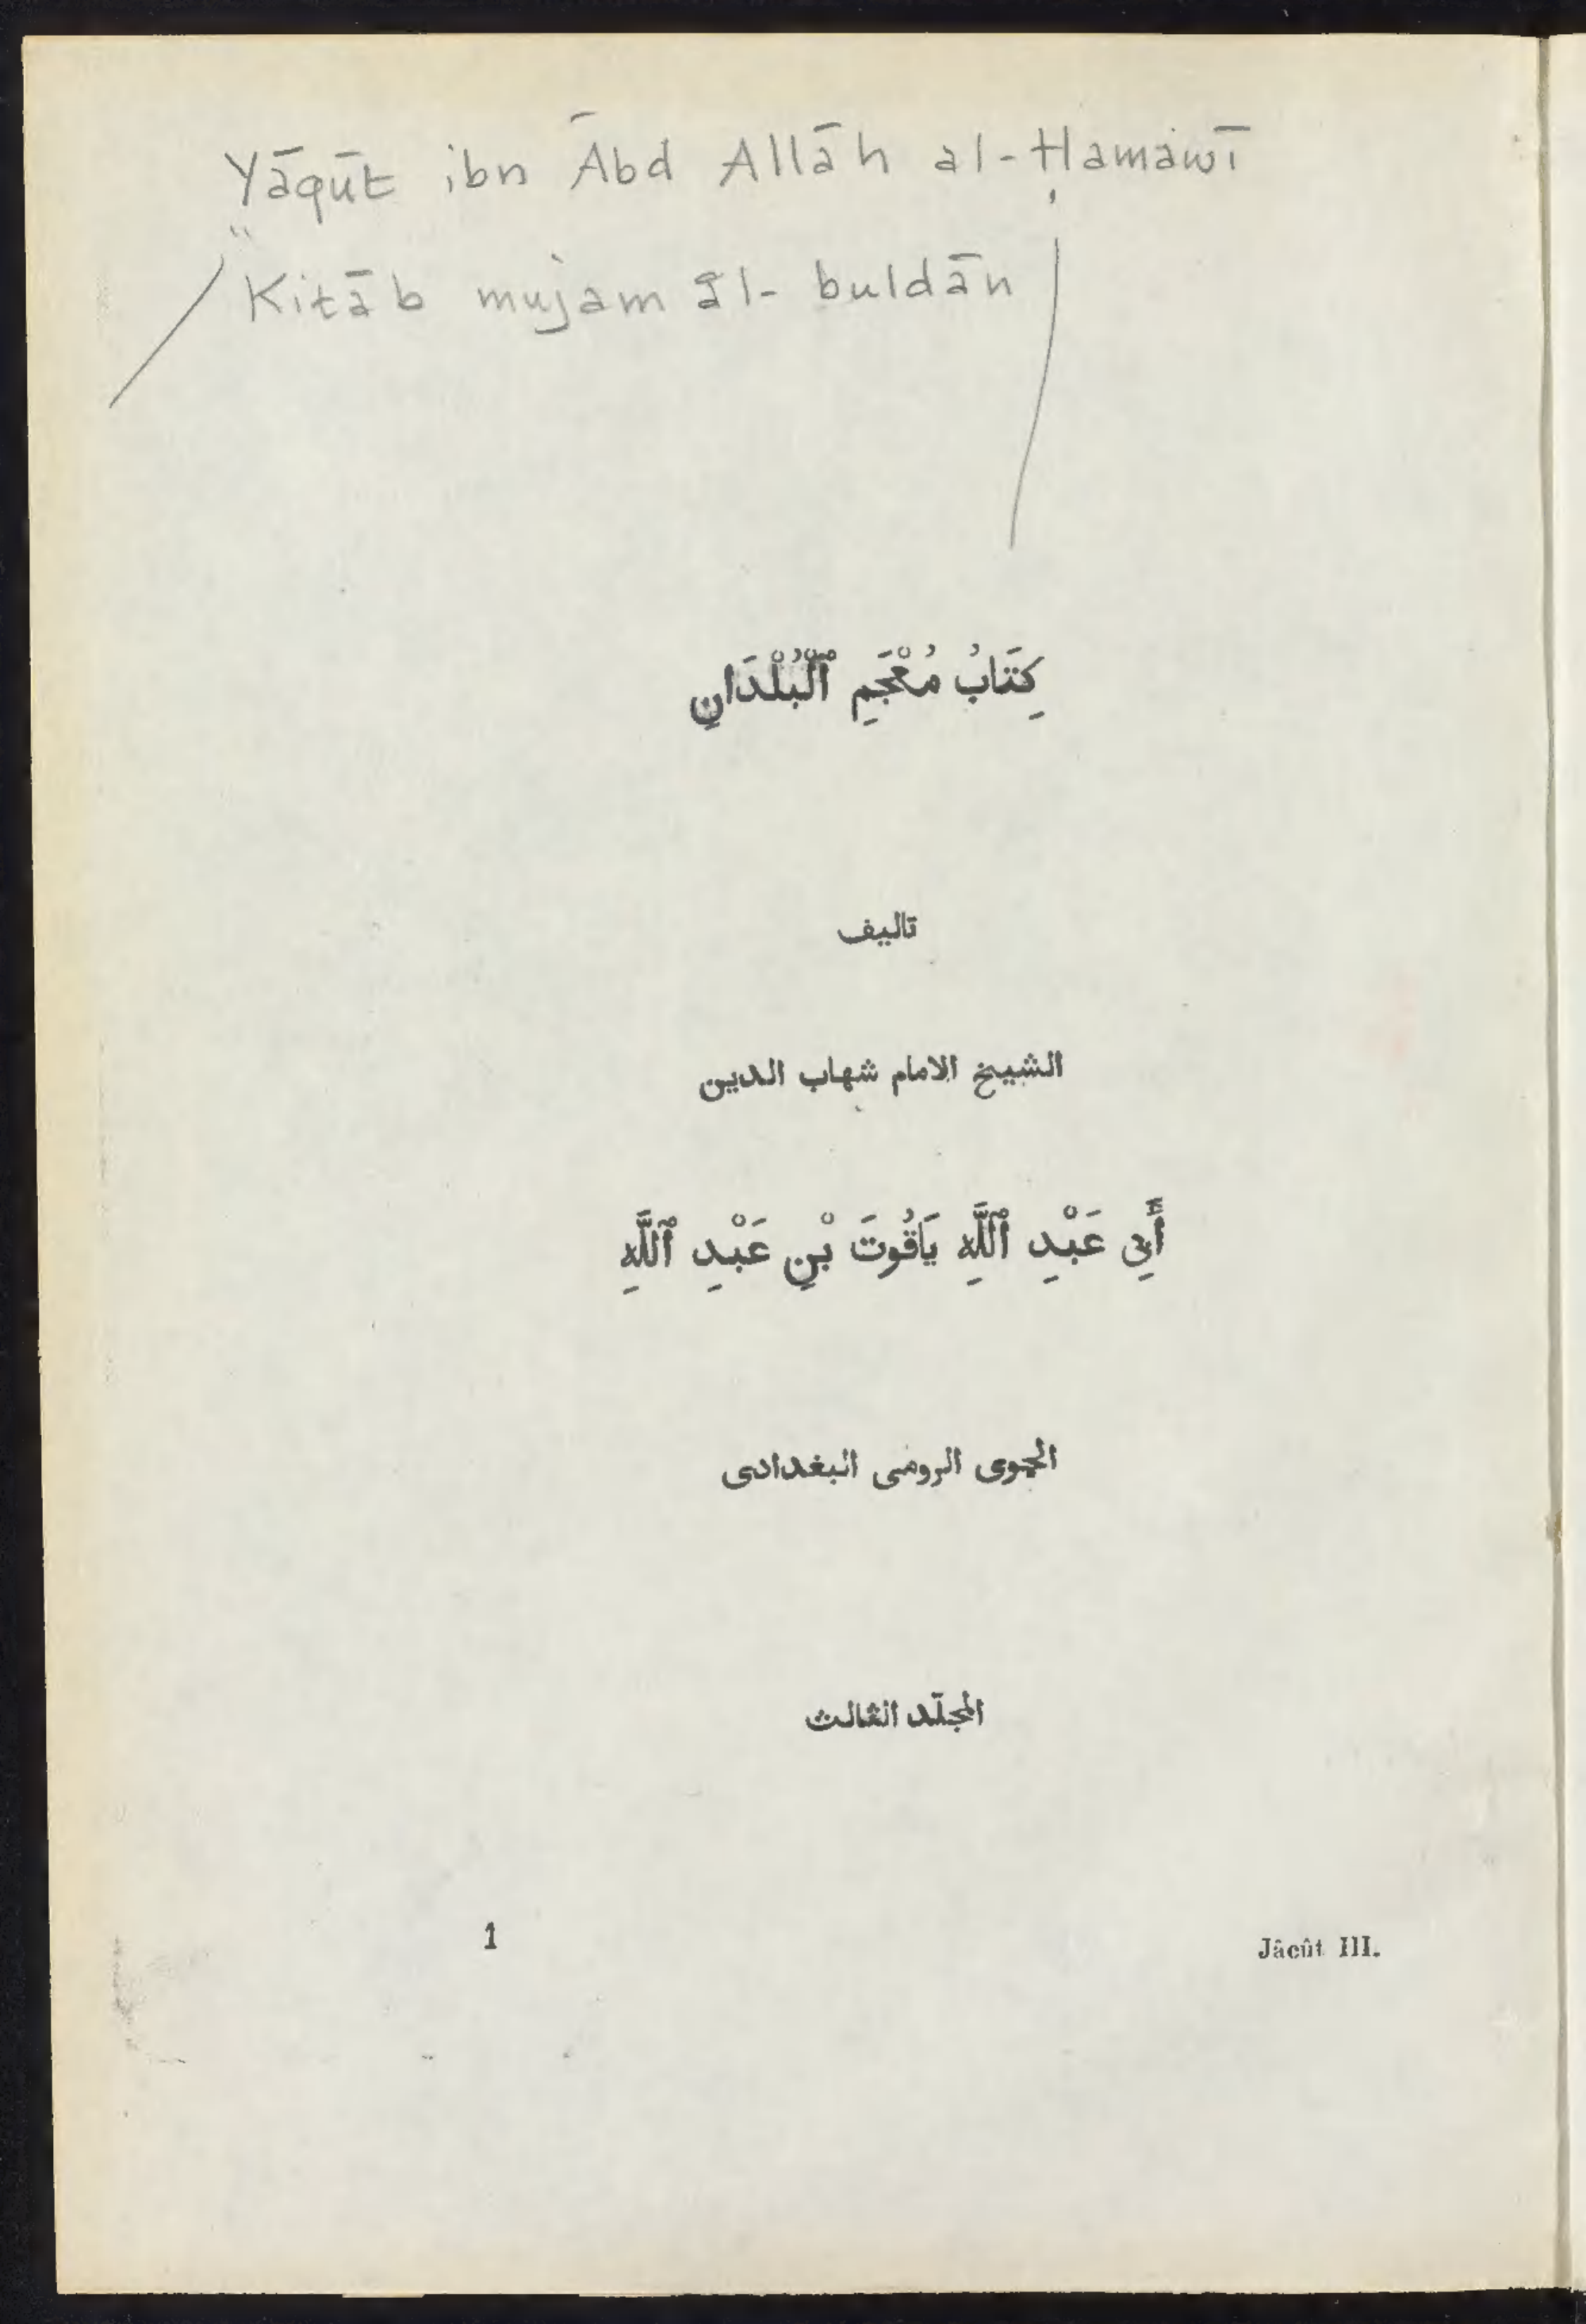 Yāqūt ibn Ābd Allāh al-Ḥamawī
Kitāb mujam al-buldān
كِتَابُ مُعْجَمِ ٱلْبُلْدَانِ
تاليف
الشيخ الامام شهاب الدين
أَبِى عَبْدِ ٱللَّهِ يَاقُوتَ بْنِ عَبْدِ ٱللَّهِ
الحموى الرومى البغدادى
المجلّد الثالث
1
Jâcût III.